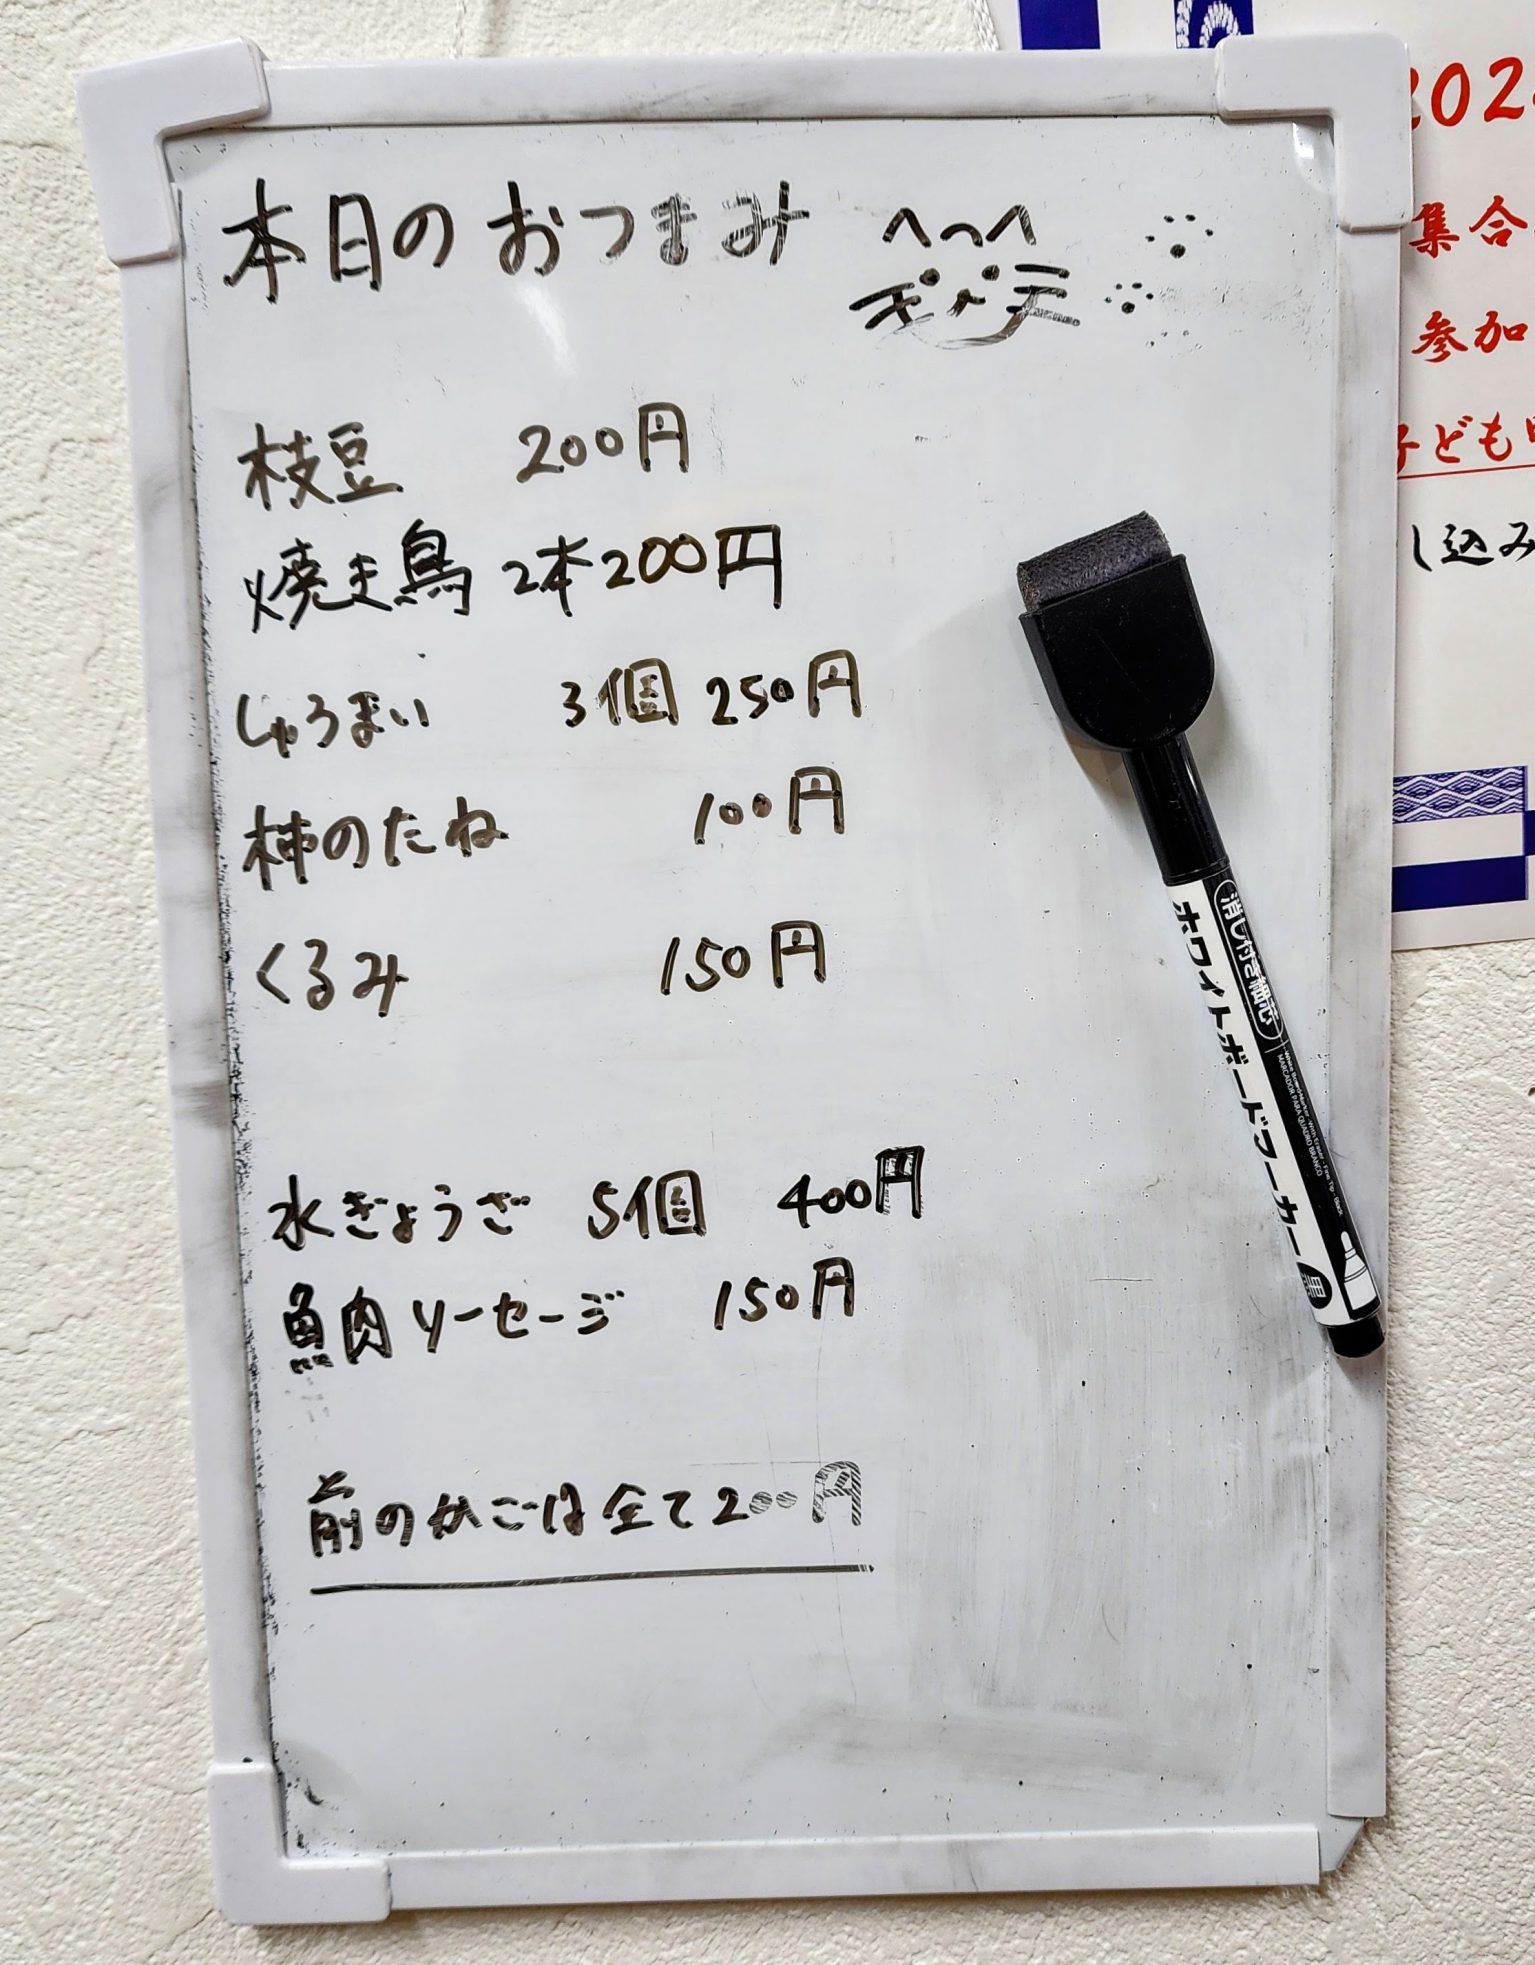 本日のおつまみ
枝豆 200円
焼き鳥 2本200円
しゅうまい 3個 250円
柿のたね 100円
くるみ 150円
水ぎょうざ 5個 400円
魚肉ソーセージ 150円
前のかごは全て200円
消し付き細芯
ホワイトボードマーカー 黒
White Board Marker -With Eraser- Fine Tip - Black
MARCADOR PARA QUADRO BRANCO
202
集合
参加
子ども
し込み